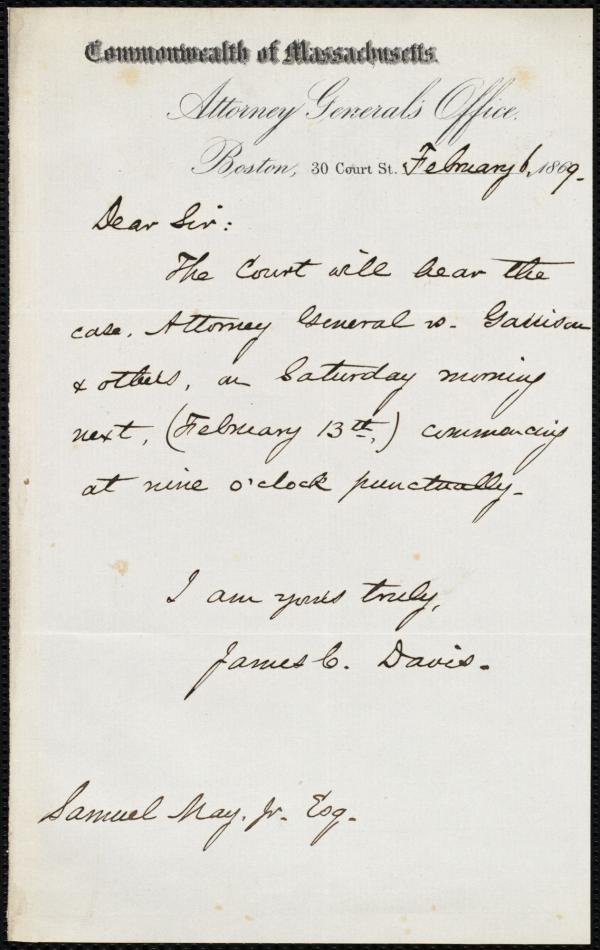 Commonwealth of Massachusetts.
Attorney General's Office.
Boston, 30 Court St. February 6, 1869.
Dear Sir:
The Court will hear the
case, Attorney General vs. Garrison
& others, on Saturday morning
next, (February 13th,) commencing
at nine o'clock punctually.
I am yours truly,
James C. Davis.
Samuel May, Jr. Esq.